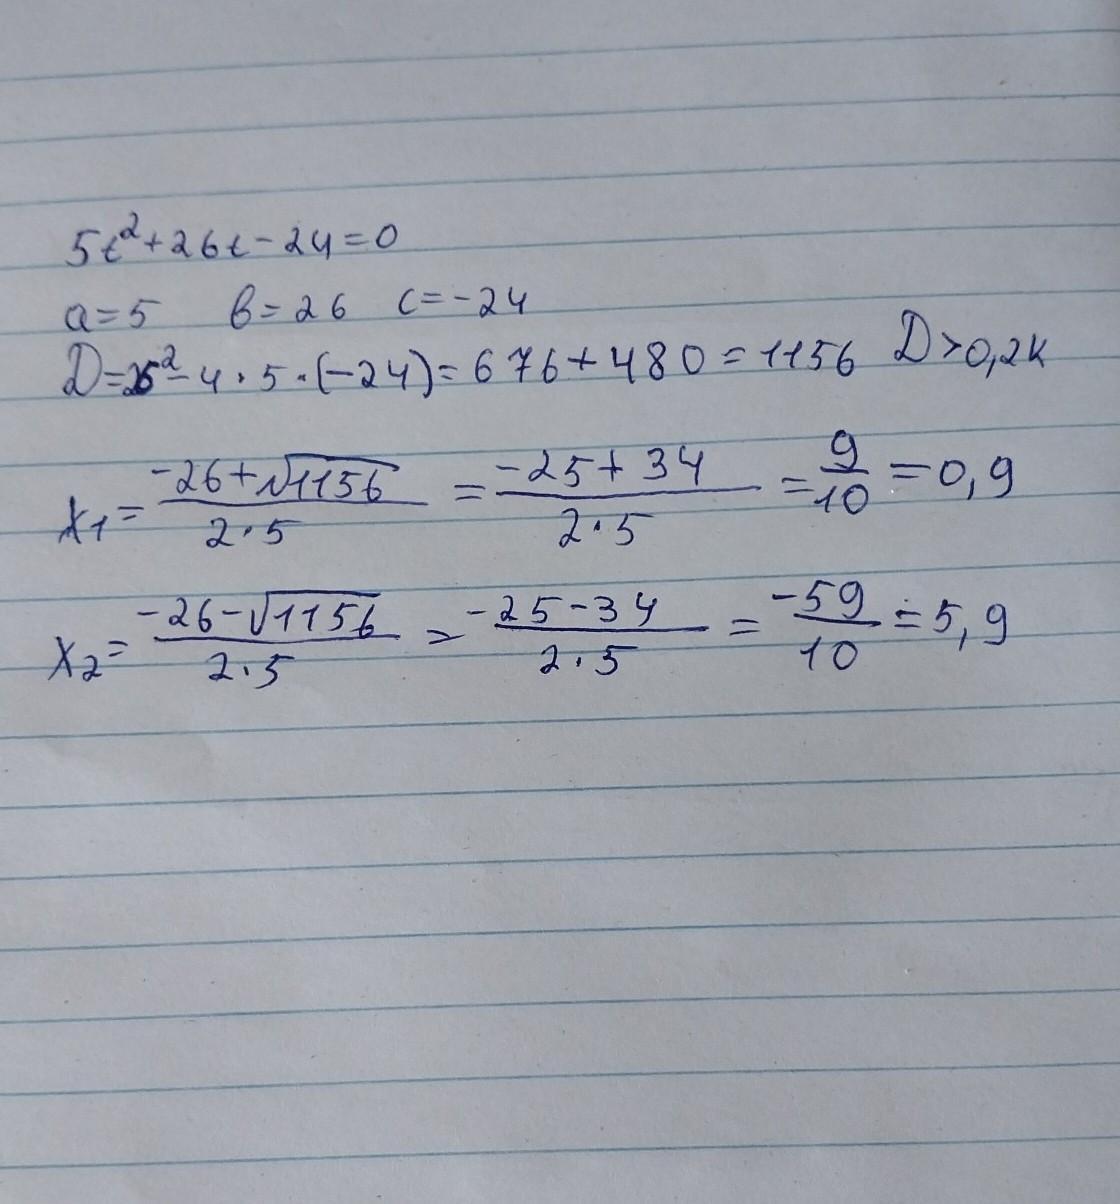 5t²+26t-24=0
a=5 b=26 c=-24
D=26²-4·5·(-24)=676+480=1156 D>0,2к
x₁=(-26+√1156)/(2·5)=(-25+34)/(2·5)=9/10=0,9
x₂=(-26-√1156)/(2·5)=(-25-34)/(2·5)=-59/10=5,9